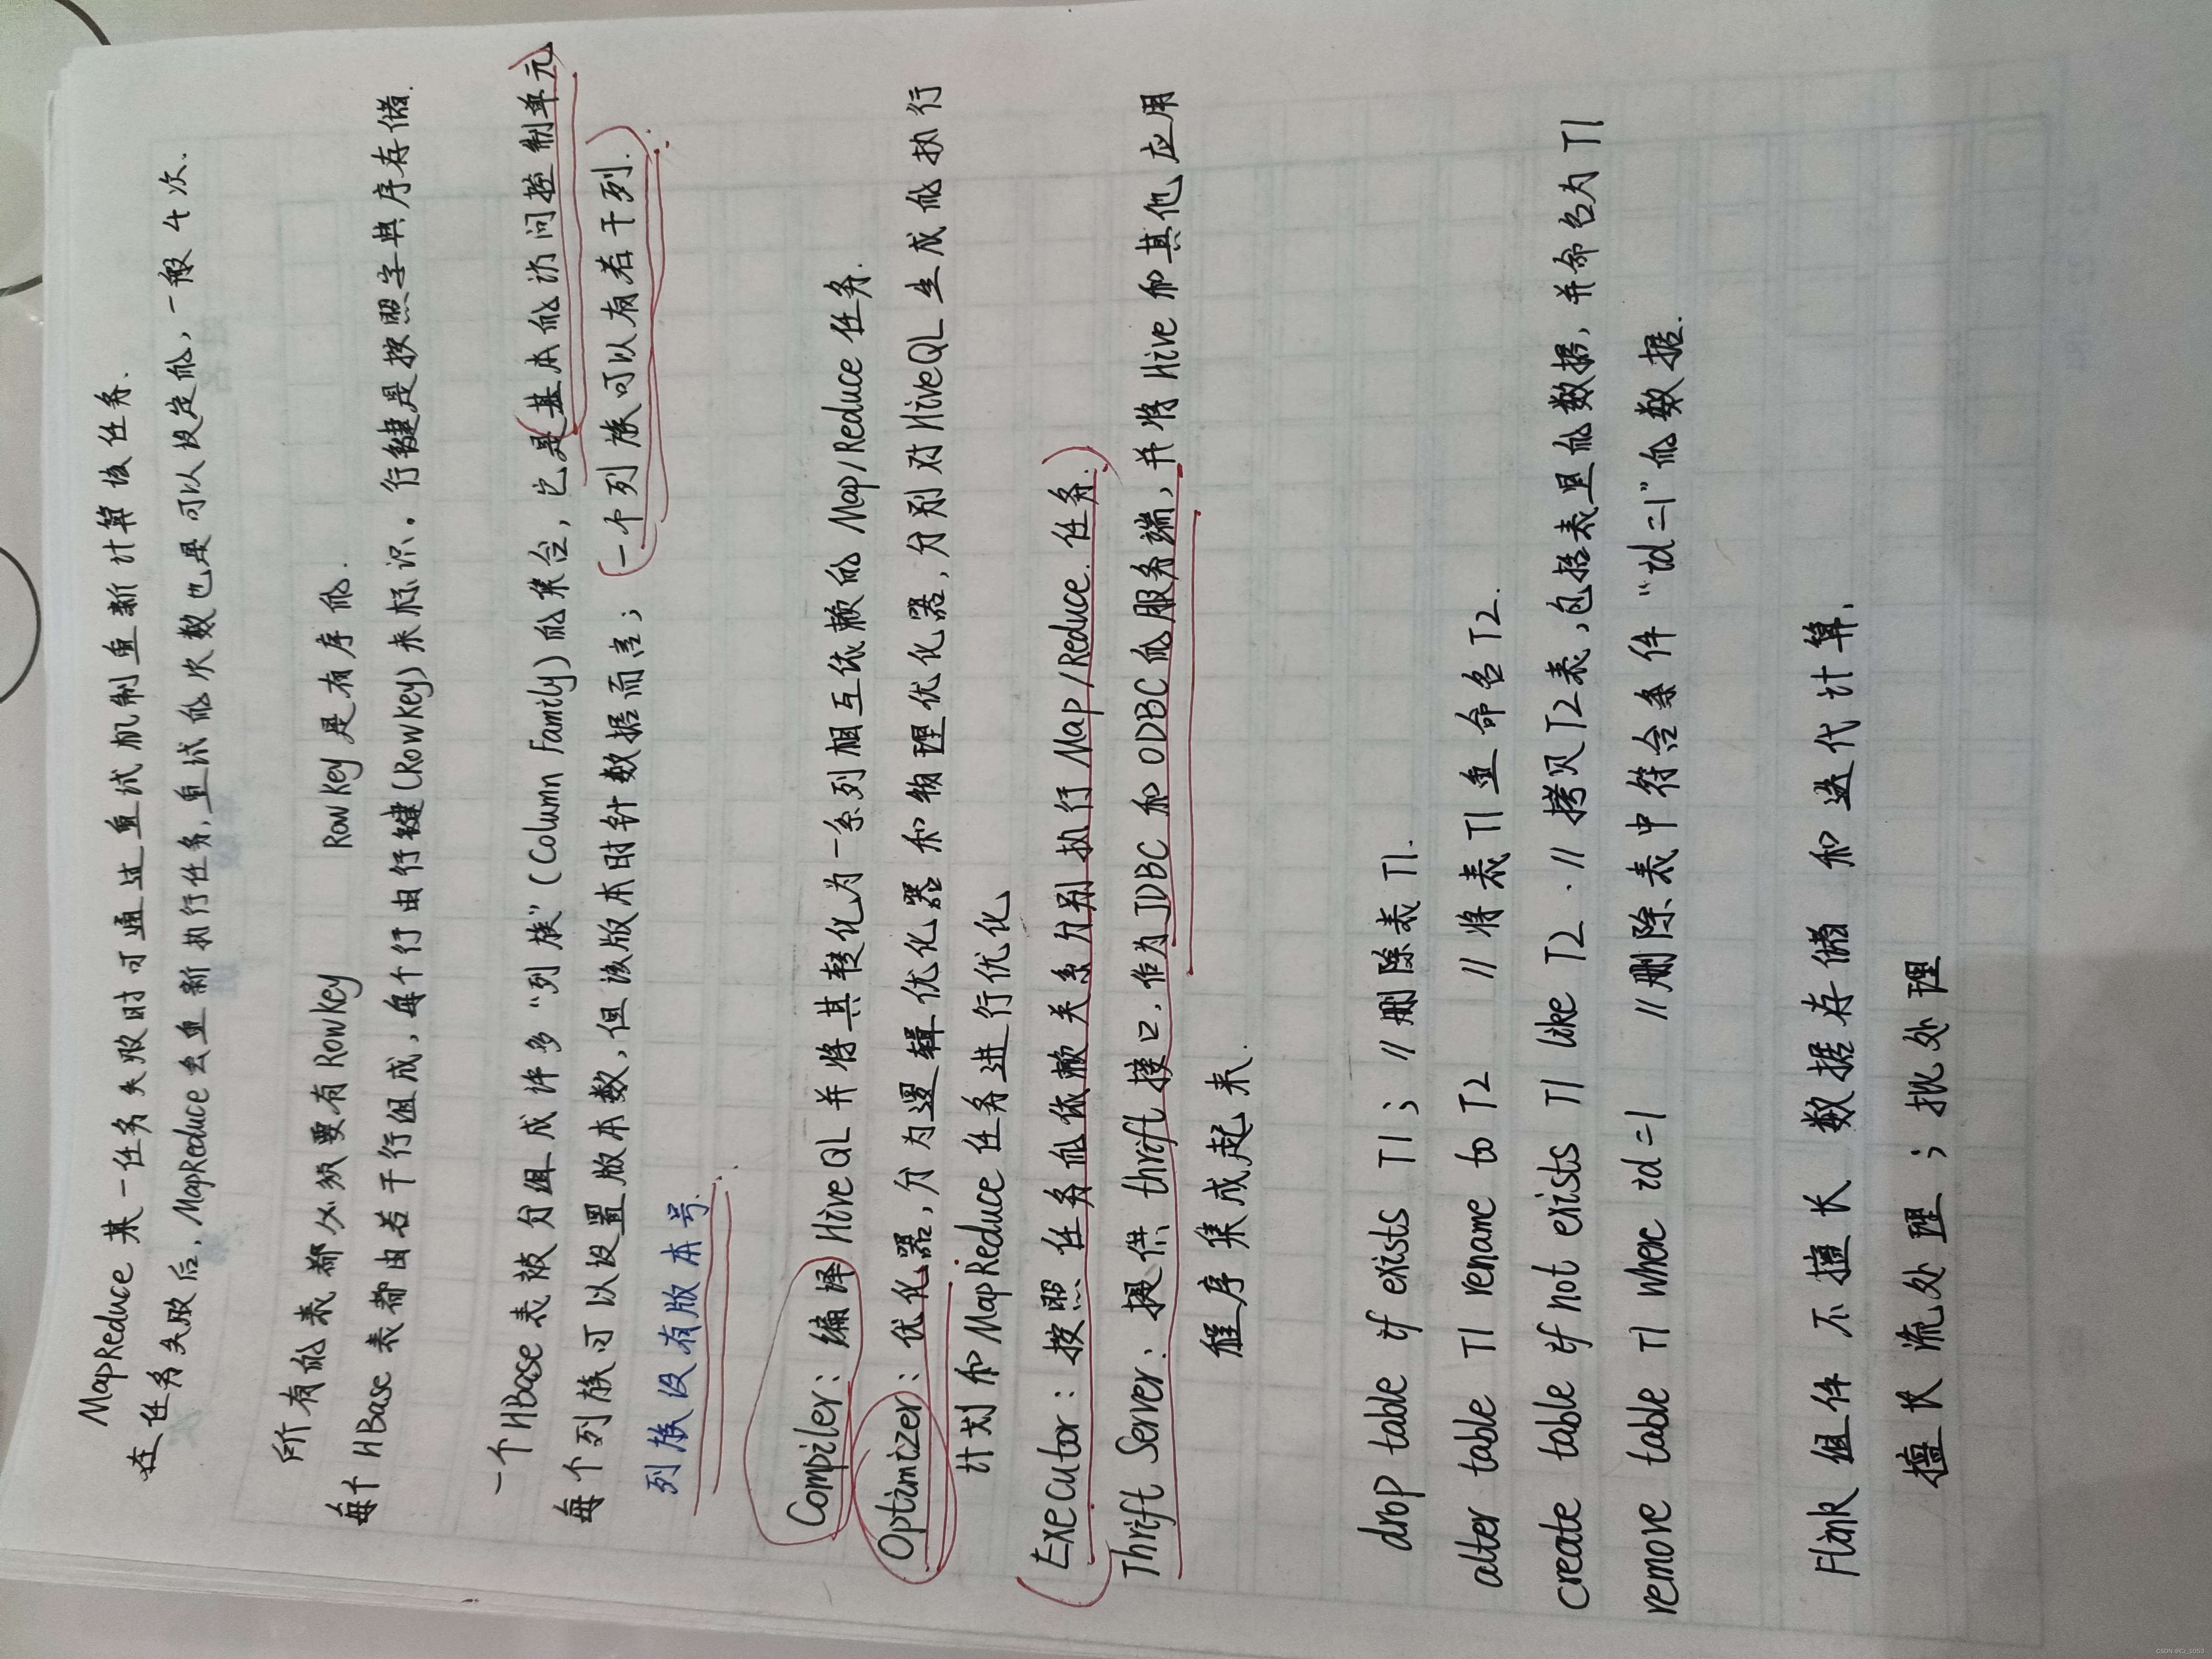 MapReduce 某一任务失败时可通过重试机制重新计算该任务.
在任务失败后, MapReduce会重新执行任务, 重试的次数也是可以设定的, 一般4次.
所有的表都必须要有RowKey RowKey是有序的.
每个HBase表都由若干行组成, 每个行由行键(RowKey)来标识. 行键是按照字典序存储.
一个HBase表被分组成许多“列族”(Column Family)的集合, 它是基本的访问控制单元)
每个列族可以设置版本数, 但该版本时针数据而言; (一个列族可以有若干列.)
列族没有版本号.
Compiler: 编译HiveQL并将其转化为一系列相互依赖的Map/Reduce任务.
Optimizer: 优化器, 分为逻辑优化器和物理优化器, 分别对HiveQL生成的执行
计划和MapReduce任务进行优化
(Executor: 按照任务的依赖关系分别执行Map/Reduce任务.)
Thrift Server: 提供thrift接口, 作为JDBC和ODBC的服务端, 并将Hive和其他应用
程序集成起来.
drop table if exists T1; //删除表T1.
alter table T1 rename to T2 //将表T1重命名T2.
create table if not exists T1 like T2. //拷贝T2表, 包括表里的数据, 并命名为T1
remove table T1 where id=1 //删除表中符合条件“id=1”的数据.
Flink组件不擅长 数据存储 和 迭代计算.
擅长流处理; 批处理